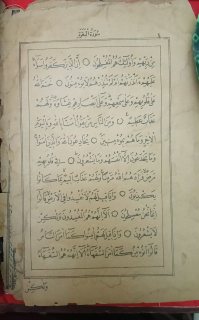 سُورَةُ الْبَقَرَةِ
مِنْ رَبِّهِمْ وَأُولَٰئِكَ هُمُ الْمُفْلِحُونَ ○ إِنَّ الَّذِينَ كَفَرُوا سَوَاءٌ
عَلَيْهِمْ أَأَنْذَرْتَهُمْ أَمْ لَمْ تُنْذِرْهُمْ لَا يُؤْمِنُونَ ○ خَتَمَ اللَّهُ
عَلَىٰ قُلُوبِهِمْ وَعَلَىٰ سَمْعِهِمْ وَعَلَىٰ أَبْصَارِهِمْ غِشَاوَةٌ وَلَهُمْ
عَذَابٌ عَظِيمٌ ○ وَمِنَ النَّاسِ مَنْ يَقُولُ آمَنَّا بِاللَّهِ وَبِالْيَوْمِ
الْآخِرِ وَمَا هُمْ بِمُؤْمِنِينَ ○ يُخَادِعُونَ اللَّهَ وَالَّذِينَ آمَنُوا
وَمَا يَخْدَعُونَ إِلَّا أَنْفُسَهُمْ وَمَا يَشْعُرُونَ ○ فِي قُلُوبِهِمْ
مَرَضٌ فَزَادَهُمُ اللَّهُ مَرَضًا وَلَهُمْ عَذَابٌ أَلِيمٌ بِمَا كَانُوا
يَكْذِبُونَ ○ وَإِذَا قِيلَ لَهُمْ لَا تُفْسِدُوا فِي الْأَرْضِ قَالُوا
إِنَّمَا نَحْنُ مُصْلِحُونَ ○ أَلَا إِنَّهُمْ هُمُ الْمُفْسِدُونَ وَلَٰكِنْ
لَا يَشْعُرُونَ ○ وَإِذَا قِيلَ لَهُمْ آمِنُوا كَمَا آمَنَ النَّاسُ
قَالُوا أَنُؤْمِنُ كَمَا آمَنَ السُّفَهَاءُ أَلَا إِنَّهُمْ هُمُ السُّفَهَاءُ
وَلَٰكِنْ